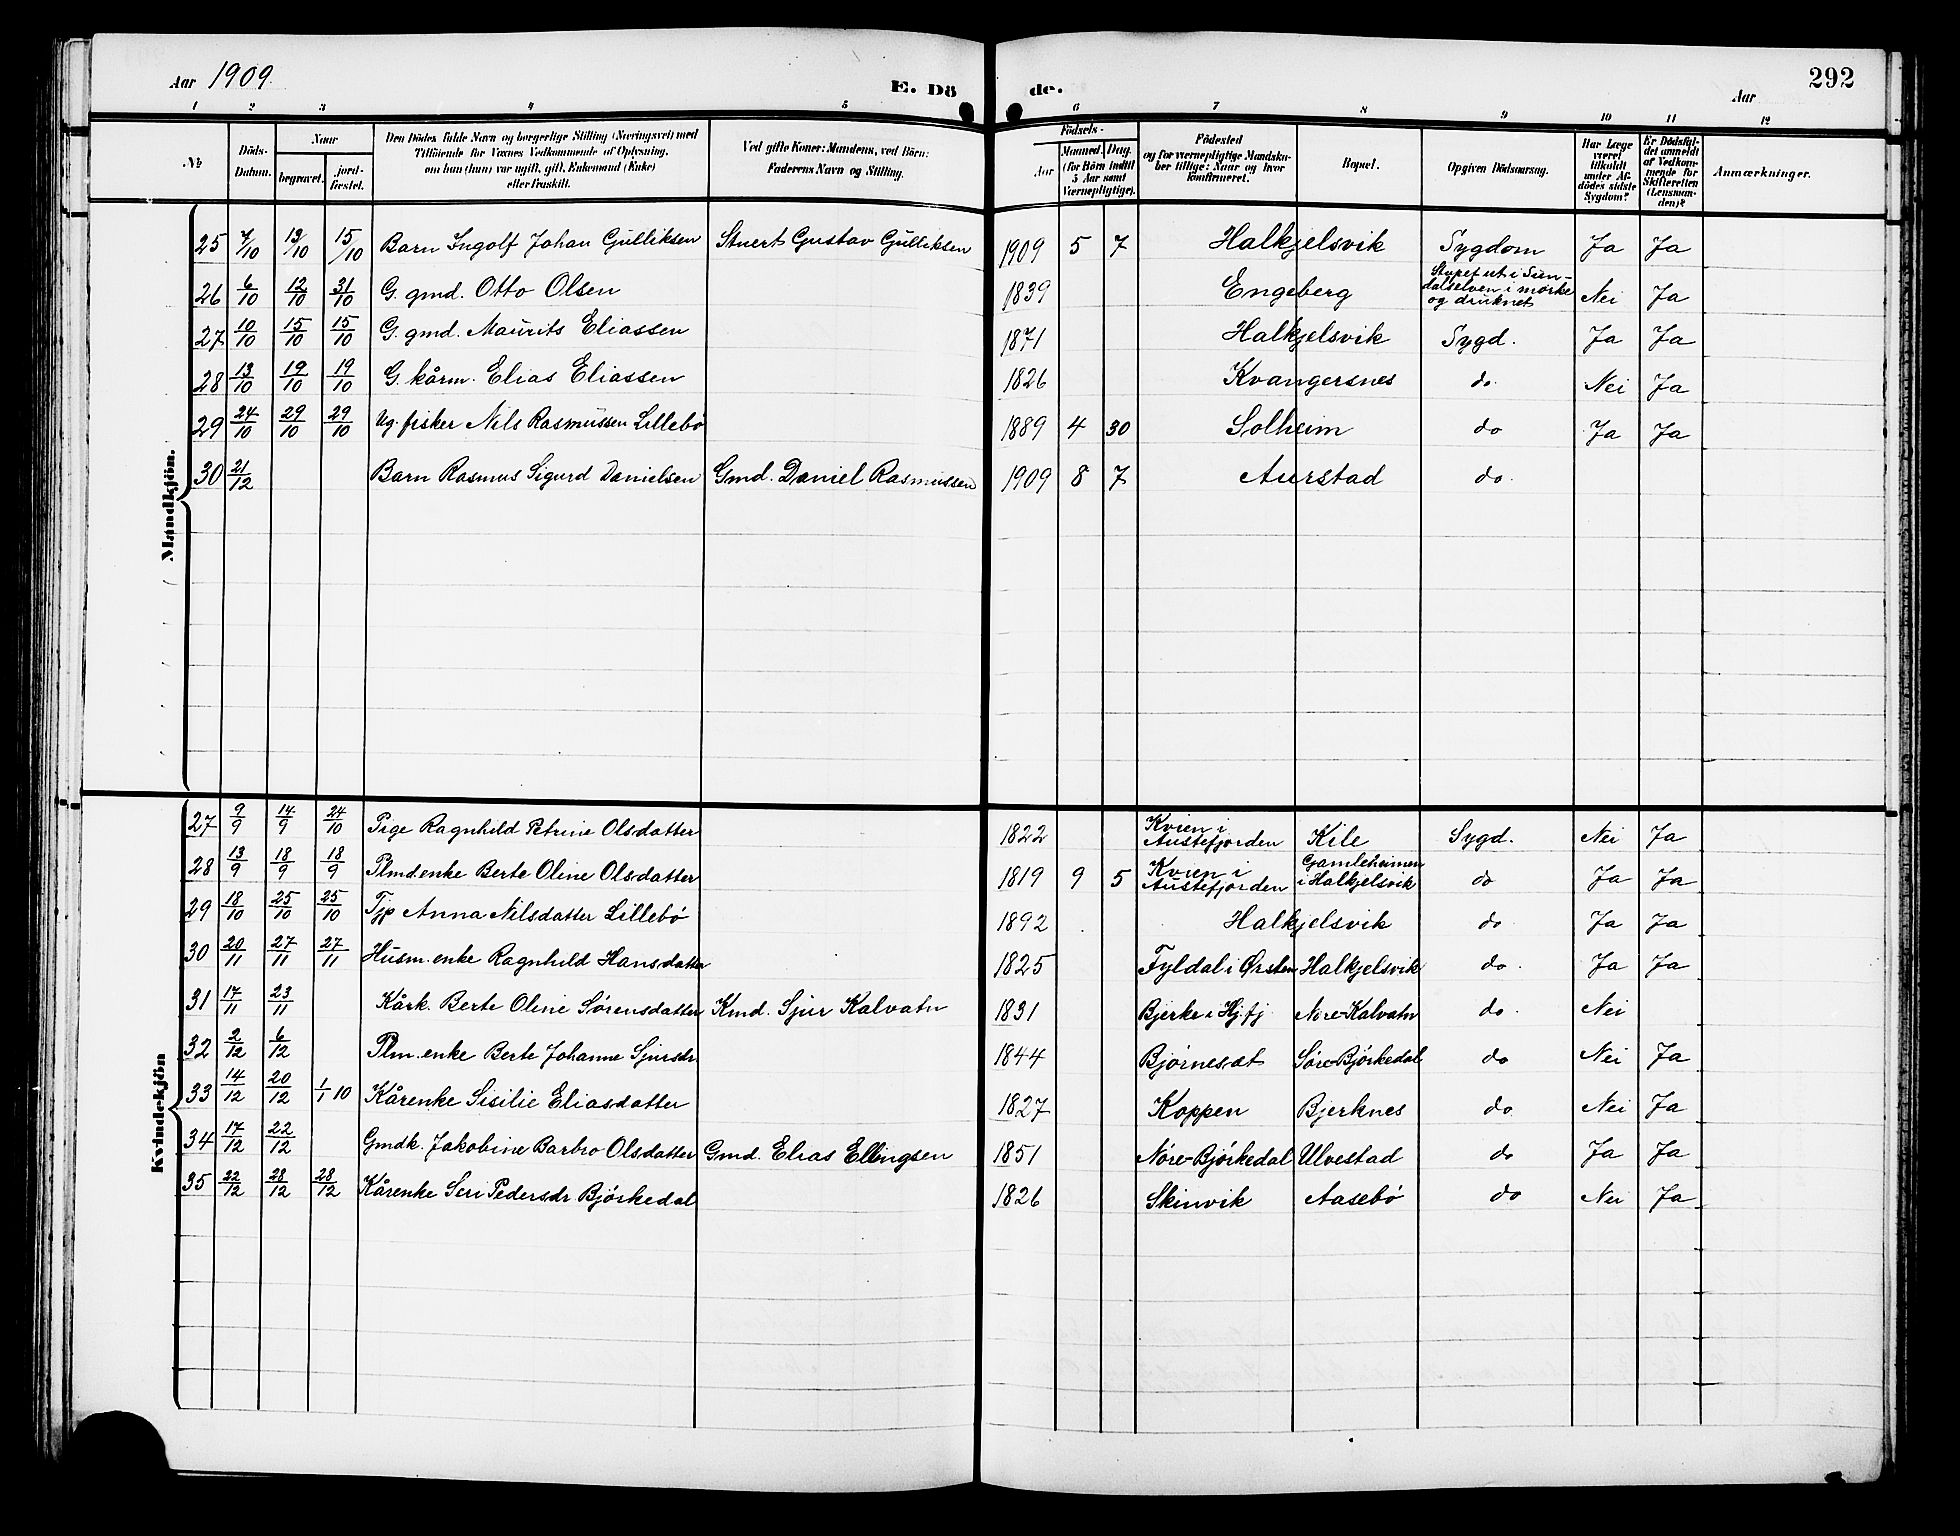 Aar 1909.
E. Dö
de.
292
Aar
1 2 3 4 5 6 7 8 9 10 11 12
No
Döds-Datum.
Naar
begravet.
jord-fæstet.
Den Dödes fulde Navn og borgerlige Stilling (Næringsvei) med
Tilföiende for Voxnes Vedkommende af Oplysning.
om han (hun) var ugift, gift, Enkemand (Enke)
eller fraskilt.
Ved gifte Koner: Mandens, ved Börn:
Faderens Navn og Stilling.
Födsels-
Aar
Maaned. Dag.
(for Börn indtil
5 Aar samt
Værnepligtige).
Födested
og for værnepligtige Mandska-
ber tillige: Naar og hvor
konfirmeret.
Bopæl.
Opgiven Dödsaarsag.
Har Læge
været
tilkaldt
under Af-
dödes sidste
Sygdom?
Er Dödsfal-
det anmeldt
af Vedkom-
mende for
Skifteretten
(Lensman-
den)?
Anmærkninger.
Mandkjön.
25 7/10 13/10 15/10 Barn Ingolf Johan Gulliksen Stuert Gustav Gulliksen 1909 5 7 Halkjelsvik Sygdom Ja Ja
26 6/10 12/10 31/10 G. gmd. Otto Olsen 1839 Engeberg Stupet ut i Sun-
dalselven i mørke
og druknet Nei Ja
27 10/10 15/10 15/10 G. gmd. Maurits Eliassen 1871 Halkjelsvik Sygd. Ja Ja
28 13/10 19/10 19/10 G. kårm. Elias Eliassen 1826 Kvangersnes do. Nei Ja
29 24/10 29/10 29/10 Ug. fisker Nils Rasmussen Lillebø 1889 4 30 Solheim do Ja Ja
30 21/12 Barn Rasmus Sigurd Danielsen Gmd. Daniel Rasmussen 1909 8 7 Aurstad do.
Kvindekjön
27 9/9 14/9 24/10 Pige Ragnhild Petrine Olsdatter 1822 Kvien i
Austefjorden Kile Sygd. Nei Ja
28 13/9 18/9 18/9 Plmd.enke Berte Oline Olsdatter 1819 9 5 Kvien i
Austefjorden Gamleheimen
i Halkjelsvik do Ja Ja
29 18/10 25/10 25/10 Tjp Anna Nilsdatter Lillebø 1892 Halkjelsvik do Ja Ja
30 20/11 27/11 27/11 Husm.enke Ragnhild Hansdatter 1825 Fyldal i Ørsten Halkjelsvik do. Ja Ja
31 17/11 23/11 Kårk. Berte Oline Sørensdatter Kmd. Sjur Kalvatn 1831 Bjerke i Hj.fj Nore-Kalvatn do. Nei
32 2/12 6/12 Plm.enke Berte Johanne Sjursdr 1844 Bjørneset Søre-Bjørkedal do Nei Ja
33 14/12 20/12 1/1 10 Kårenke Sisilie Eliasdatter 1827 Koppen Bjerknes do Nei Ja
34 17/12 22/12 Gmdk. Jakobine Barbro Olsdatter Gmd. Elias Ellingsen 1851 Nore-Bjørkedal Ulvestad do Ja Ja
35 22/12 28/12 28/12 Kårenke Seri Pedersdr Bjørkedal 1826 Skinvik Aasebø do Nei Ja